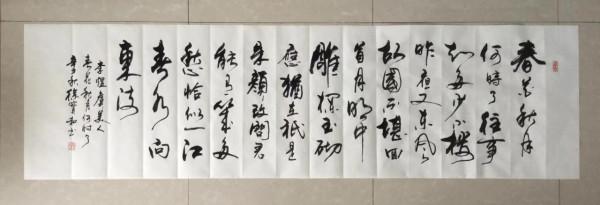 春花秋月
何時了往事
知多少小樓
昨夜又东风
故國不堪回
首月明中
雕欄玉砌
應猶在祇是
朱顏改問君
能有幾多
愁恰似一江
春水向
東流
李煜虞美人
春花秋月何时了